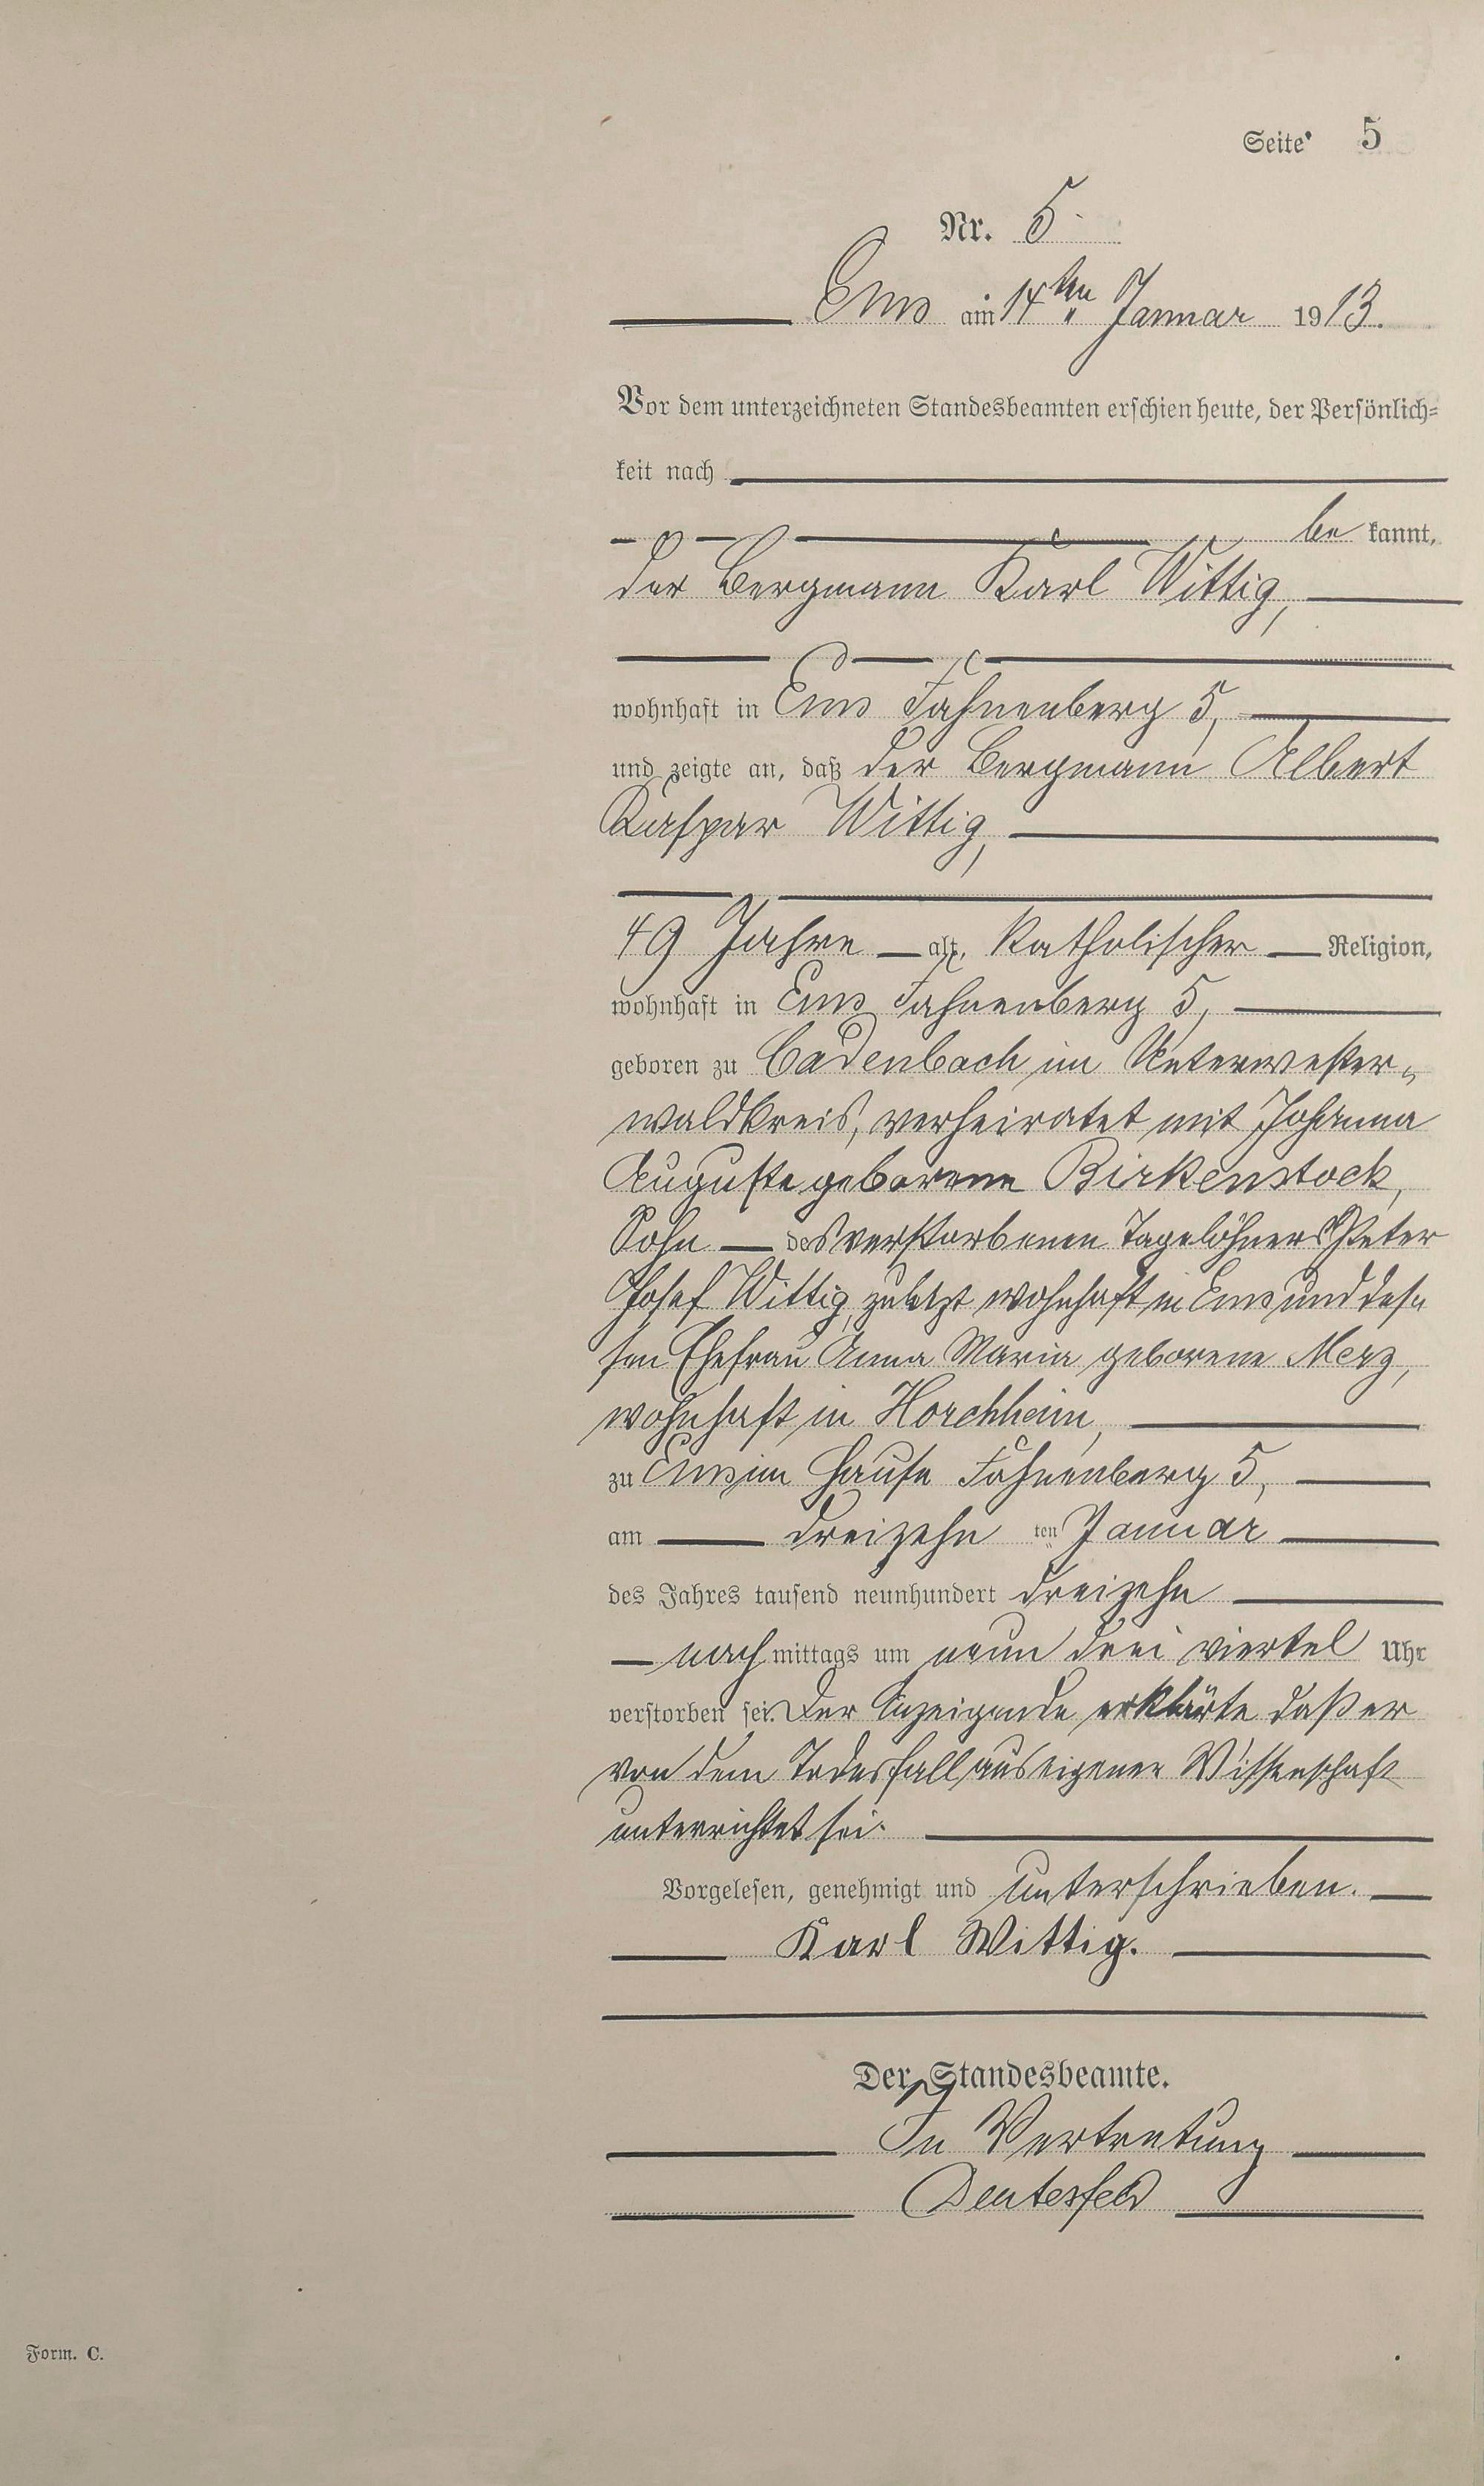 Seite 5
Nr. 5
Ems am 14ten Januar 1913.
Vor dem unterzeichneten Standesbeamten erschien heute, der Persönlich=
keit nach
be kannt,
der Bergmann Karl Wittig,
wohnhaft in Ems Fahnenberg 5,
und zeigte an, daß der Bergmann Albert
Kaspar Wittig,
49 Jahre alt, katholischer Religion,
wohnhaft in Ems Fahnenberg 5,
geboren zu Cadenbach im Unterwester=
waldkreis, verheiratet mit Johanna
Auguste geborene Birkenstock,
Sohn des verstorbenen Tagelöhners Peter
Josef Wittig, zuletzt wohnhaft in Ems und des=
sen Ehefrau Anna Maria geborene Merz,
wohnhaft in Horchheim,
zu Ems im Hause Fahnenberg 5,
am dreizehn ten Januar
des Jahres tausend neunhundert dreizehn
nach mittags um neun drei viertel Uhr
verstorben sei. Der Anzeigende erklärte daß er
von dem Todesfall aus eigener Wissenschaft
unterrichtet sei.
Vorgelesen, genehmigt und unterschrieben.
Karl Wittig.
Der Standesbeamte.
In Vertretung
Deutesfeld
Form. C.